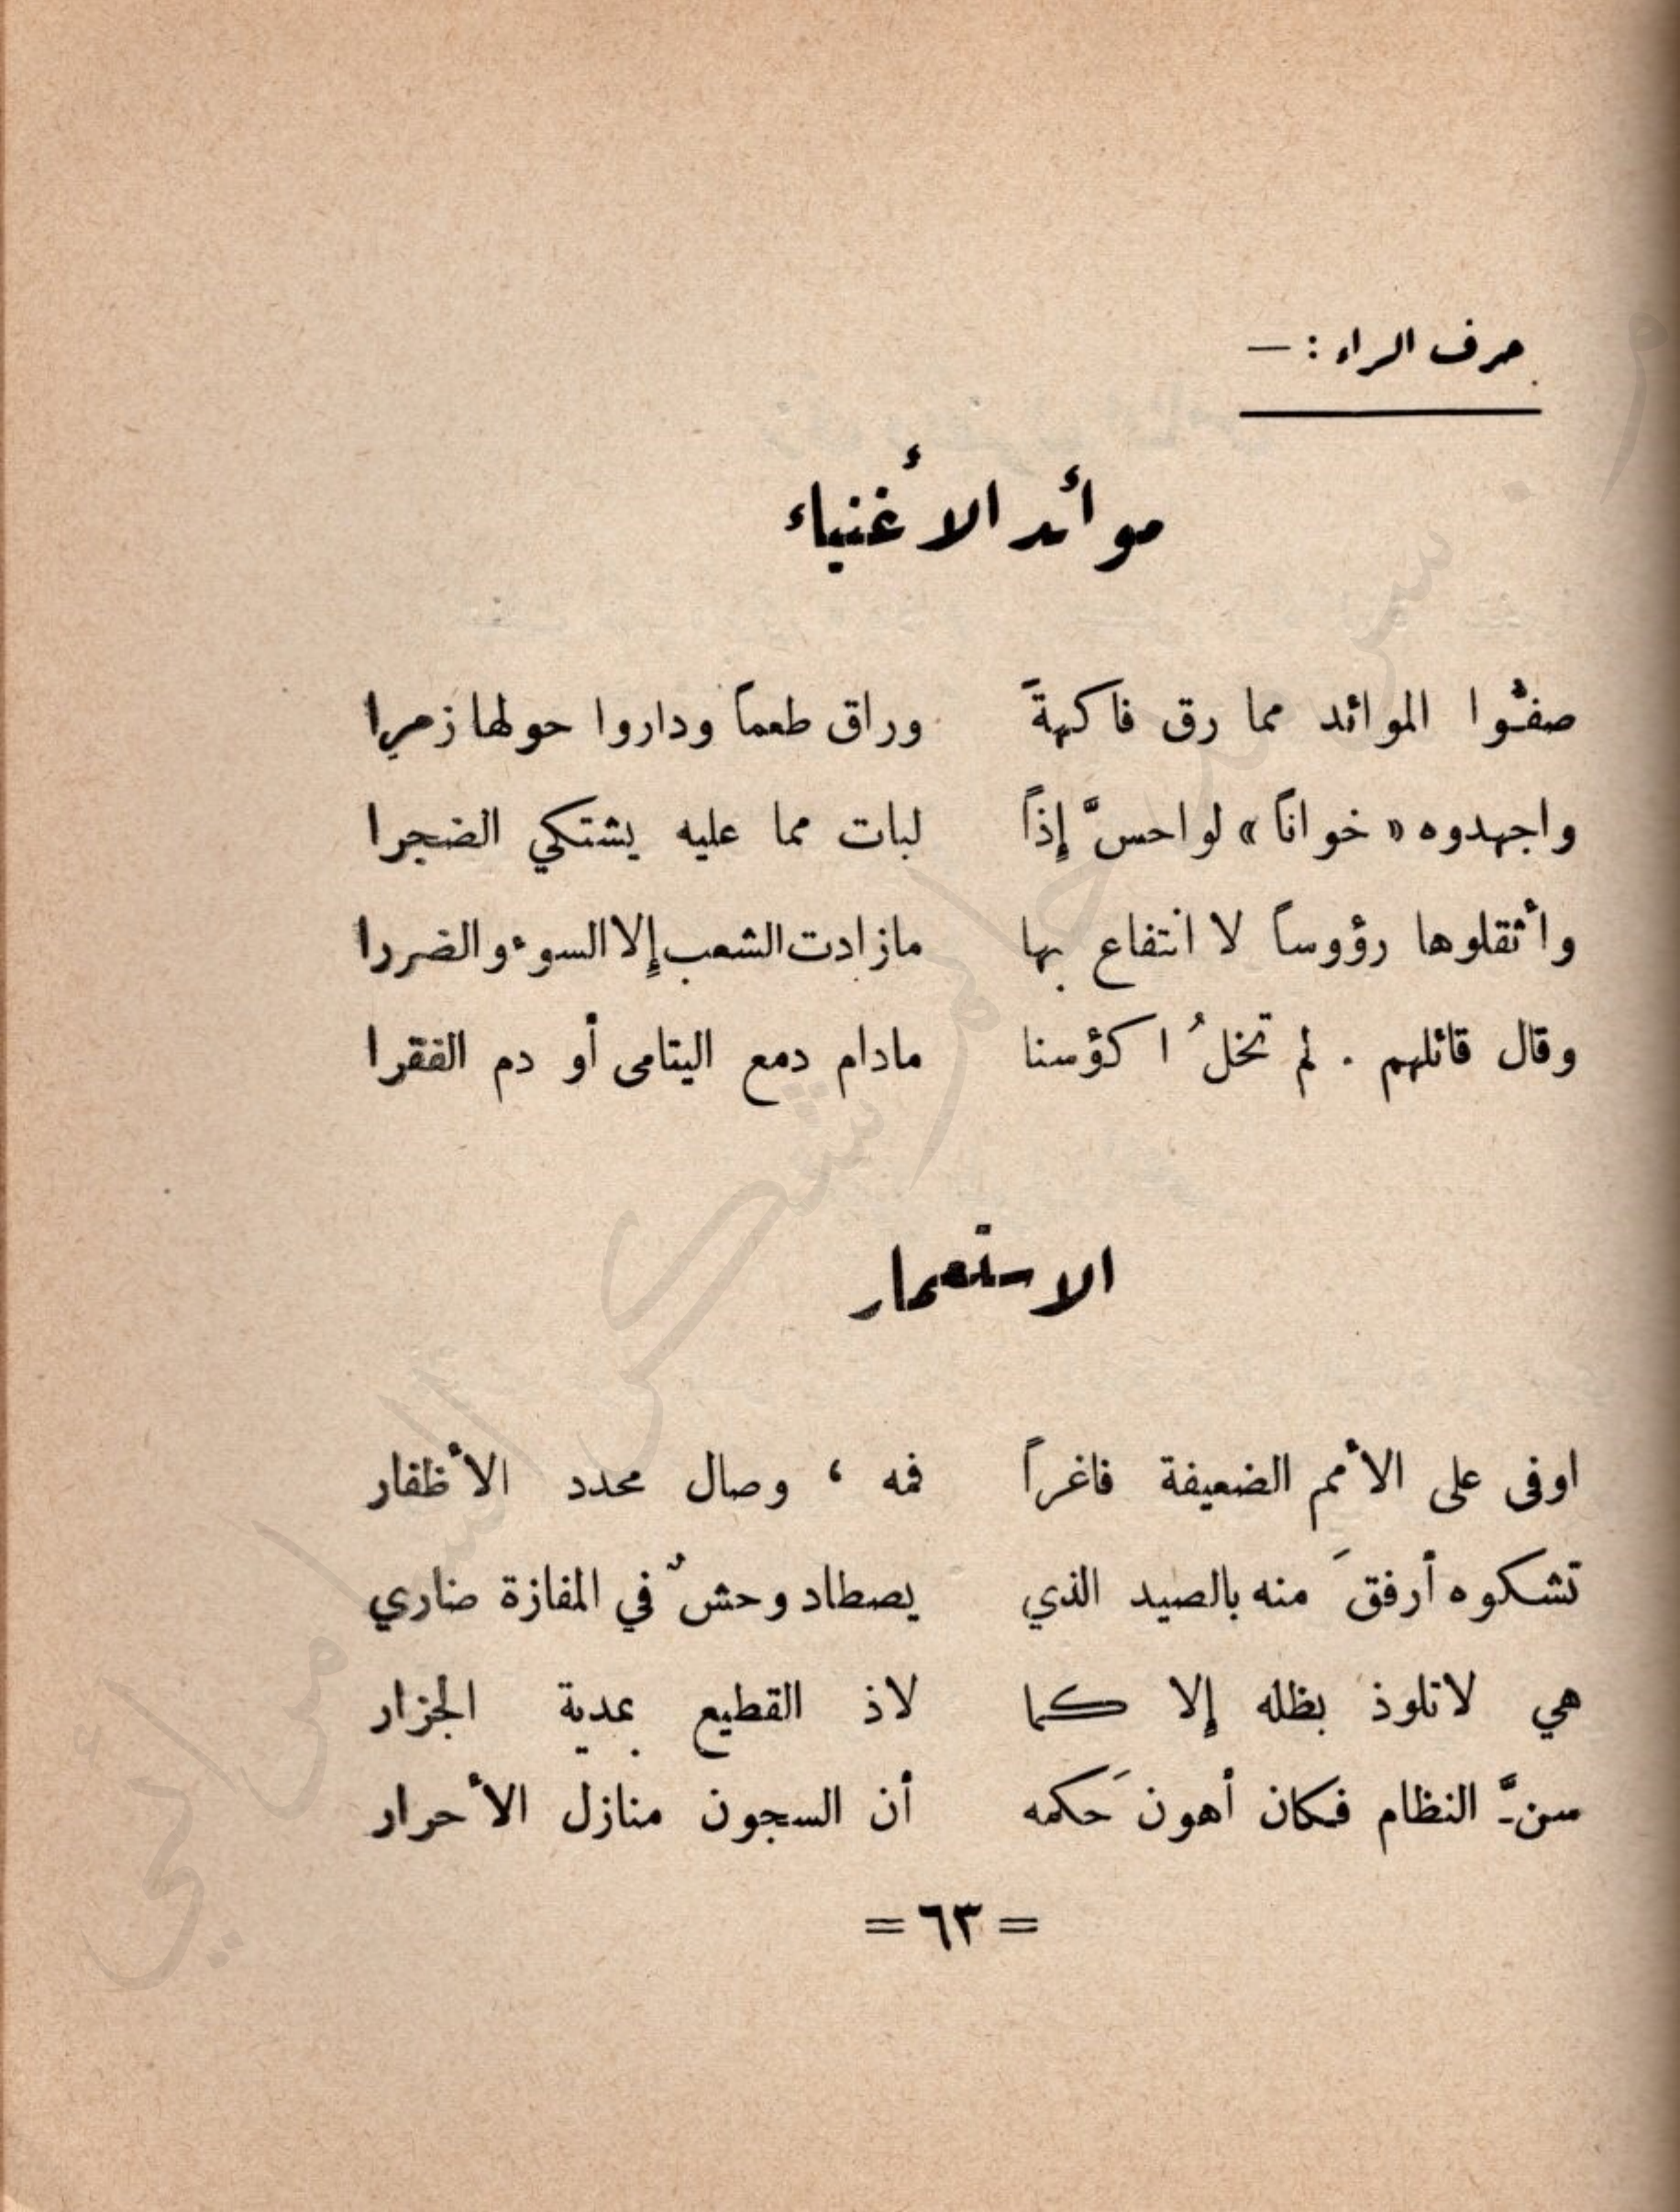 حرف الراء : —
موائد الأغنياء
صفّوا الموائد مما رق فاكهةً وراق طعماً وداروا حولها زمرا
واجهدوه « خواناً » لو احسَّ إذاً لبات مما عليه يشتكي الضجرا
وأثقلوها رؤوساً لا انتفاع بها مازادت الشعب إلا السوء والضررا
وقال قائلهم . لم تخلُ اكؤسنا مادام دمع اليتامى أو دم الفقرا
الاستعمار
اوفى على الأمم الضعيفة فاغراً فمه ، وصال محدد الأظفار
تشكوه أرفقَ منه بالصيد الذي يصطاد وحشٌ في المفازة ضاري
هي لاتلوذ بظله إلا كما لاذ القطيع بمدية الجزار
سنَّ النظام فكان أهون حَكمه أن السجون منازل الأحرار
= ٦٣ =